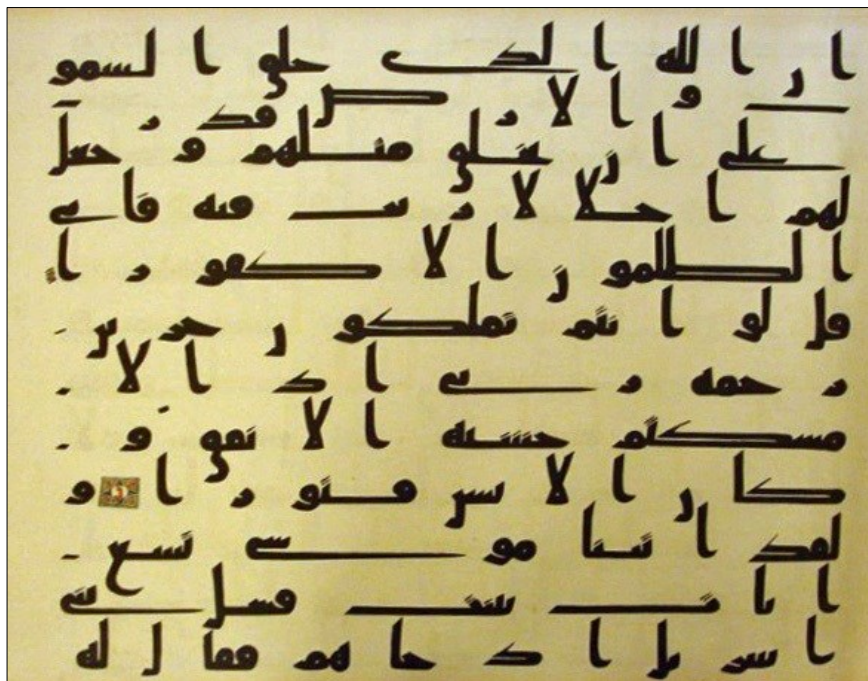 ان الله الذى خلق السمو
ت والارض قدر
على ان يخلق مثلهم وجعل
لهم اجلا لا ريب فيه فابى
الظلمون الا كفورا
قل لو انتم تملكون خزين
رحمه ربى اذا لا
مسكتم خشيه الانفق و
كان الانسن قتورا و
لقد اتينا موسى تسع
ايت بينت فسل بنى
اسريل اذ جاهم فقال له